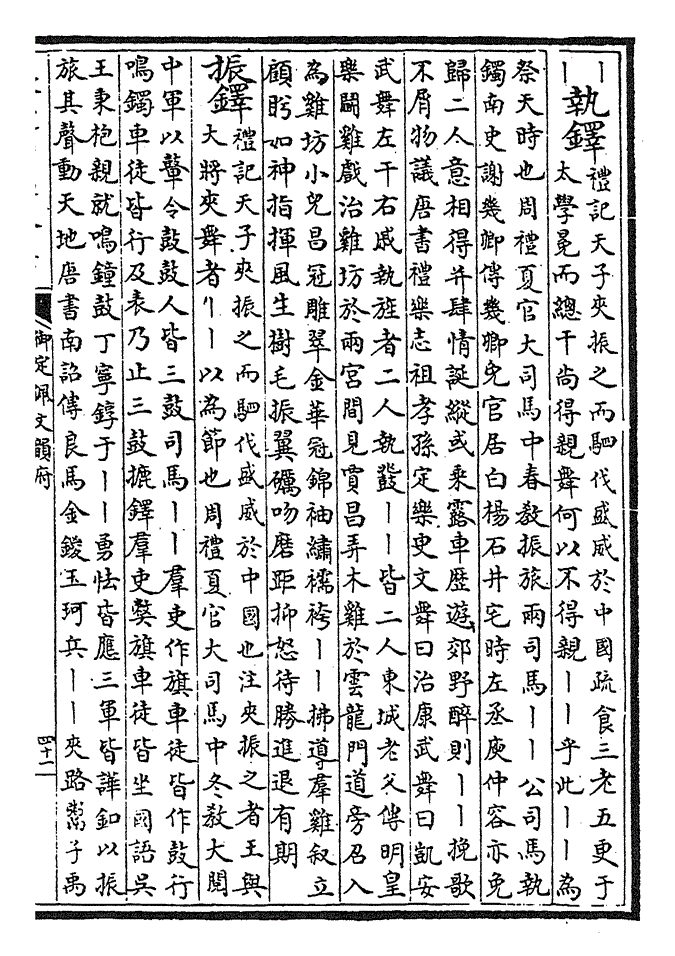 丨
丨
執鐸
禮記天子夾振之而駟伐盛威於中國疏食三老五更于
太學冕而總干尚得親舞何以不得親丨丨乎此丨丨為
祭天時也周禮夏官大司馬中春教振旅兩司馬丨丨公司馬執
鐲南史謝幾卿傳幾卿免官居白楊石井宅時左丞庾仲容亦免
歸二人意相得并肆情誕縱或乘露車歷遊郊野醉則丨丨挽歌
不屑物議唐書禮樂志祖孝孫定樂更文舞曰治康武舞曰凱安
武舞左干右戚執旌者二人執發丨丨皆二人東城老父傳明皇
樂鬭雞戲治雞坊於兩宮間見賈昌弄木雞於雲龍門道旁召入
為雞坊小兒昌冠雕翠金華冠錦袖繡襦袴丨丨拂導羣雞叙立
顧眄如神指揮風生樹毛振翼礪吻磨距抑怒待勝進退有期
振鐸
禮記天子夾振之而駟伐盛威於中國也注夾振之者王與
大將夾舞者丨丨以為節也周禮夏官大司馬中冬教大閱
中軍以鼙令鼓鼓人皆三鼓司馬丨丨羣吏作旗車徒皆作鼓行
鳴鐲車徒皆行及表乃止三鼓摝鐸羣吏弊旗車徒皆坐國語吳
王秉枹親就鳴鐘鼓丁寧錞于丨丨勇怯皆應三軍皆譁釦以振
旅其聲動天地唐書南詔傳良馬金鍐玉珂兵丨丨夾路鬻子禹
御定佩文韻府
四十二